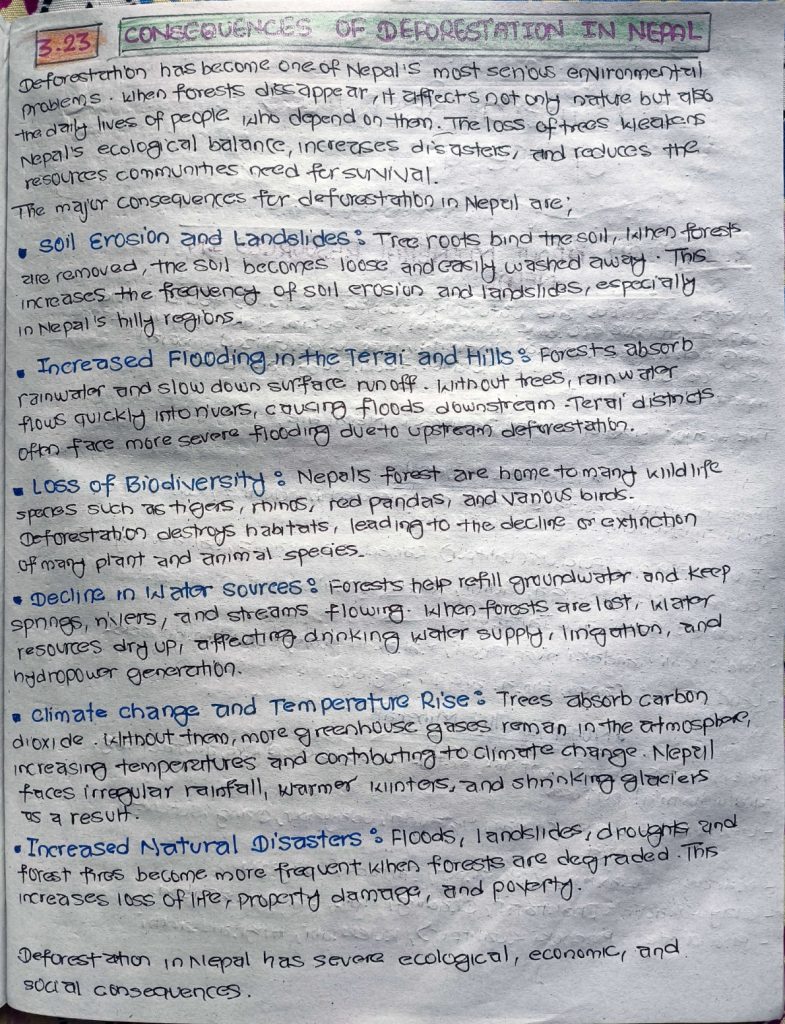 3.23 CONSEQUENCES OF DEFORESTATION IN NEPAL
Deforestation has become one of Nepal's most serious environmental
problems. When forests dissappear, it affects not only nature but also
the daily lives of people who depend on them. The loss of trees weakens
Nepal's ecological balance, increases disasters, and reduces the
resources communities need for survival.
The major consequences for deforestation in Nepal are;
▪ Soil Erosion and Landslides: Tree roots bind the soil, When forests
are removed, the soil becomes loose and easily washed away. This
increases the frequency of soil erosion and landslides, especially
in Nepal's hilly regions.
▪ Increased Flooding in the Terai and Hills: Forests absorb
rainwater and slow down surface runoff. Without trees, rainwater
flows quickly into rivers, causing floods downstream. Terai districts
often face more severe flooding due to upstream deforestation.
▪ Loss of Biodiversity: Nepals forest are home to many wildlife
species such as tigers, rhinos, red pandas, and various birds.
Deforestation destroys habitats, leading to the decline or extinction
of many plant and animal species.
▪ Decline in Water Sources: Forests help refill groundwater and keep
springs, rivers, and streams flowing. When forests are lost, water
resources dry up, affecting drinking water supply, irrigation, and
hydropower generation.
▪ Climate Change and Temperature Rise: Trees absorb carbon
dioxide. Without them, more greenhouse gases remain in the atmosphere,
increasing temperatures and contributing to climate change. Nepal
faces irregular rainfall, warmer winters, and shrinking glaciers
as a result.
▪ Increased Natural Disasters: Floods, landslides, droughts and
forest fires become more frequent when forests are degraded. This
increases loss of life, property damage, and poverty.
Deforestation in Nepal has severe ecological, economic, and
social consequences.